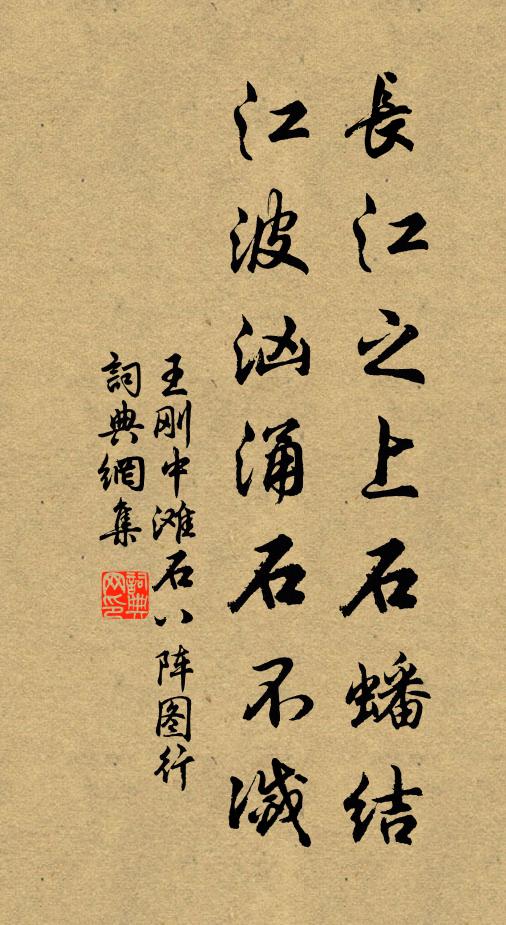 長江之上石蟠结
江波汹涌石不滅
王刚中滩石八阵图行
詞典網集
詞典网印